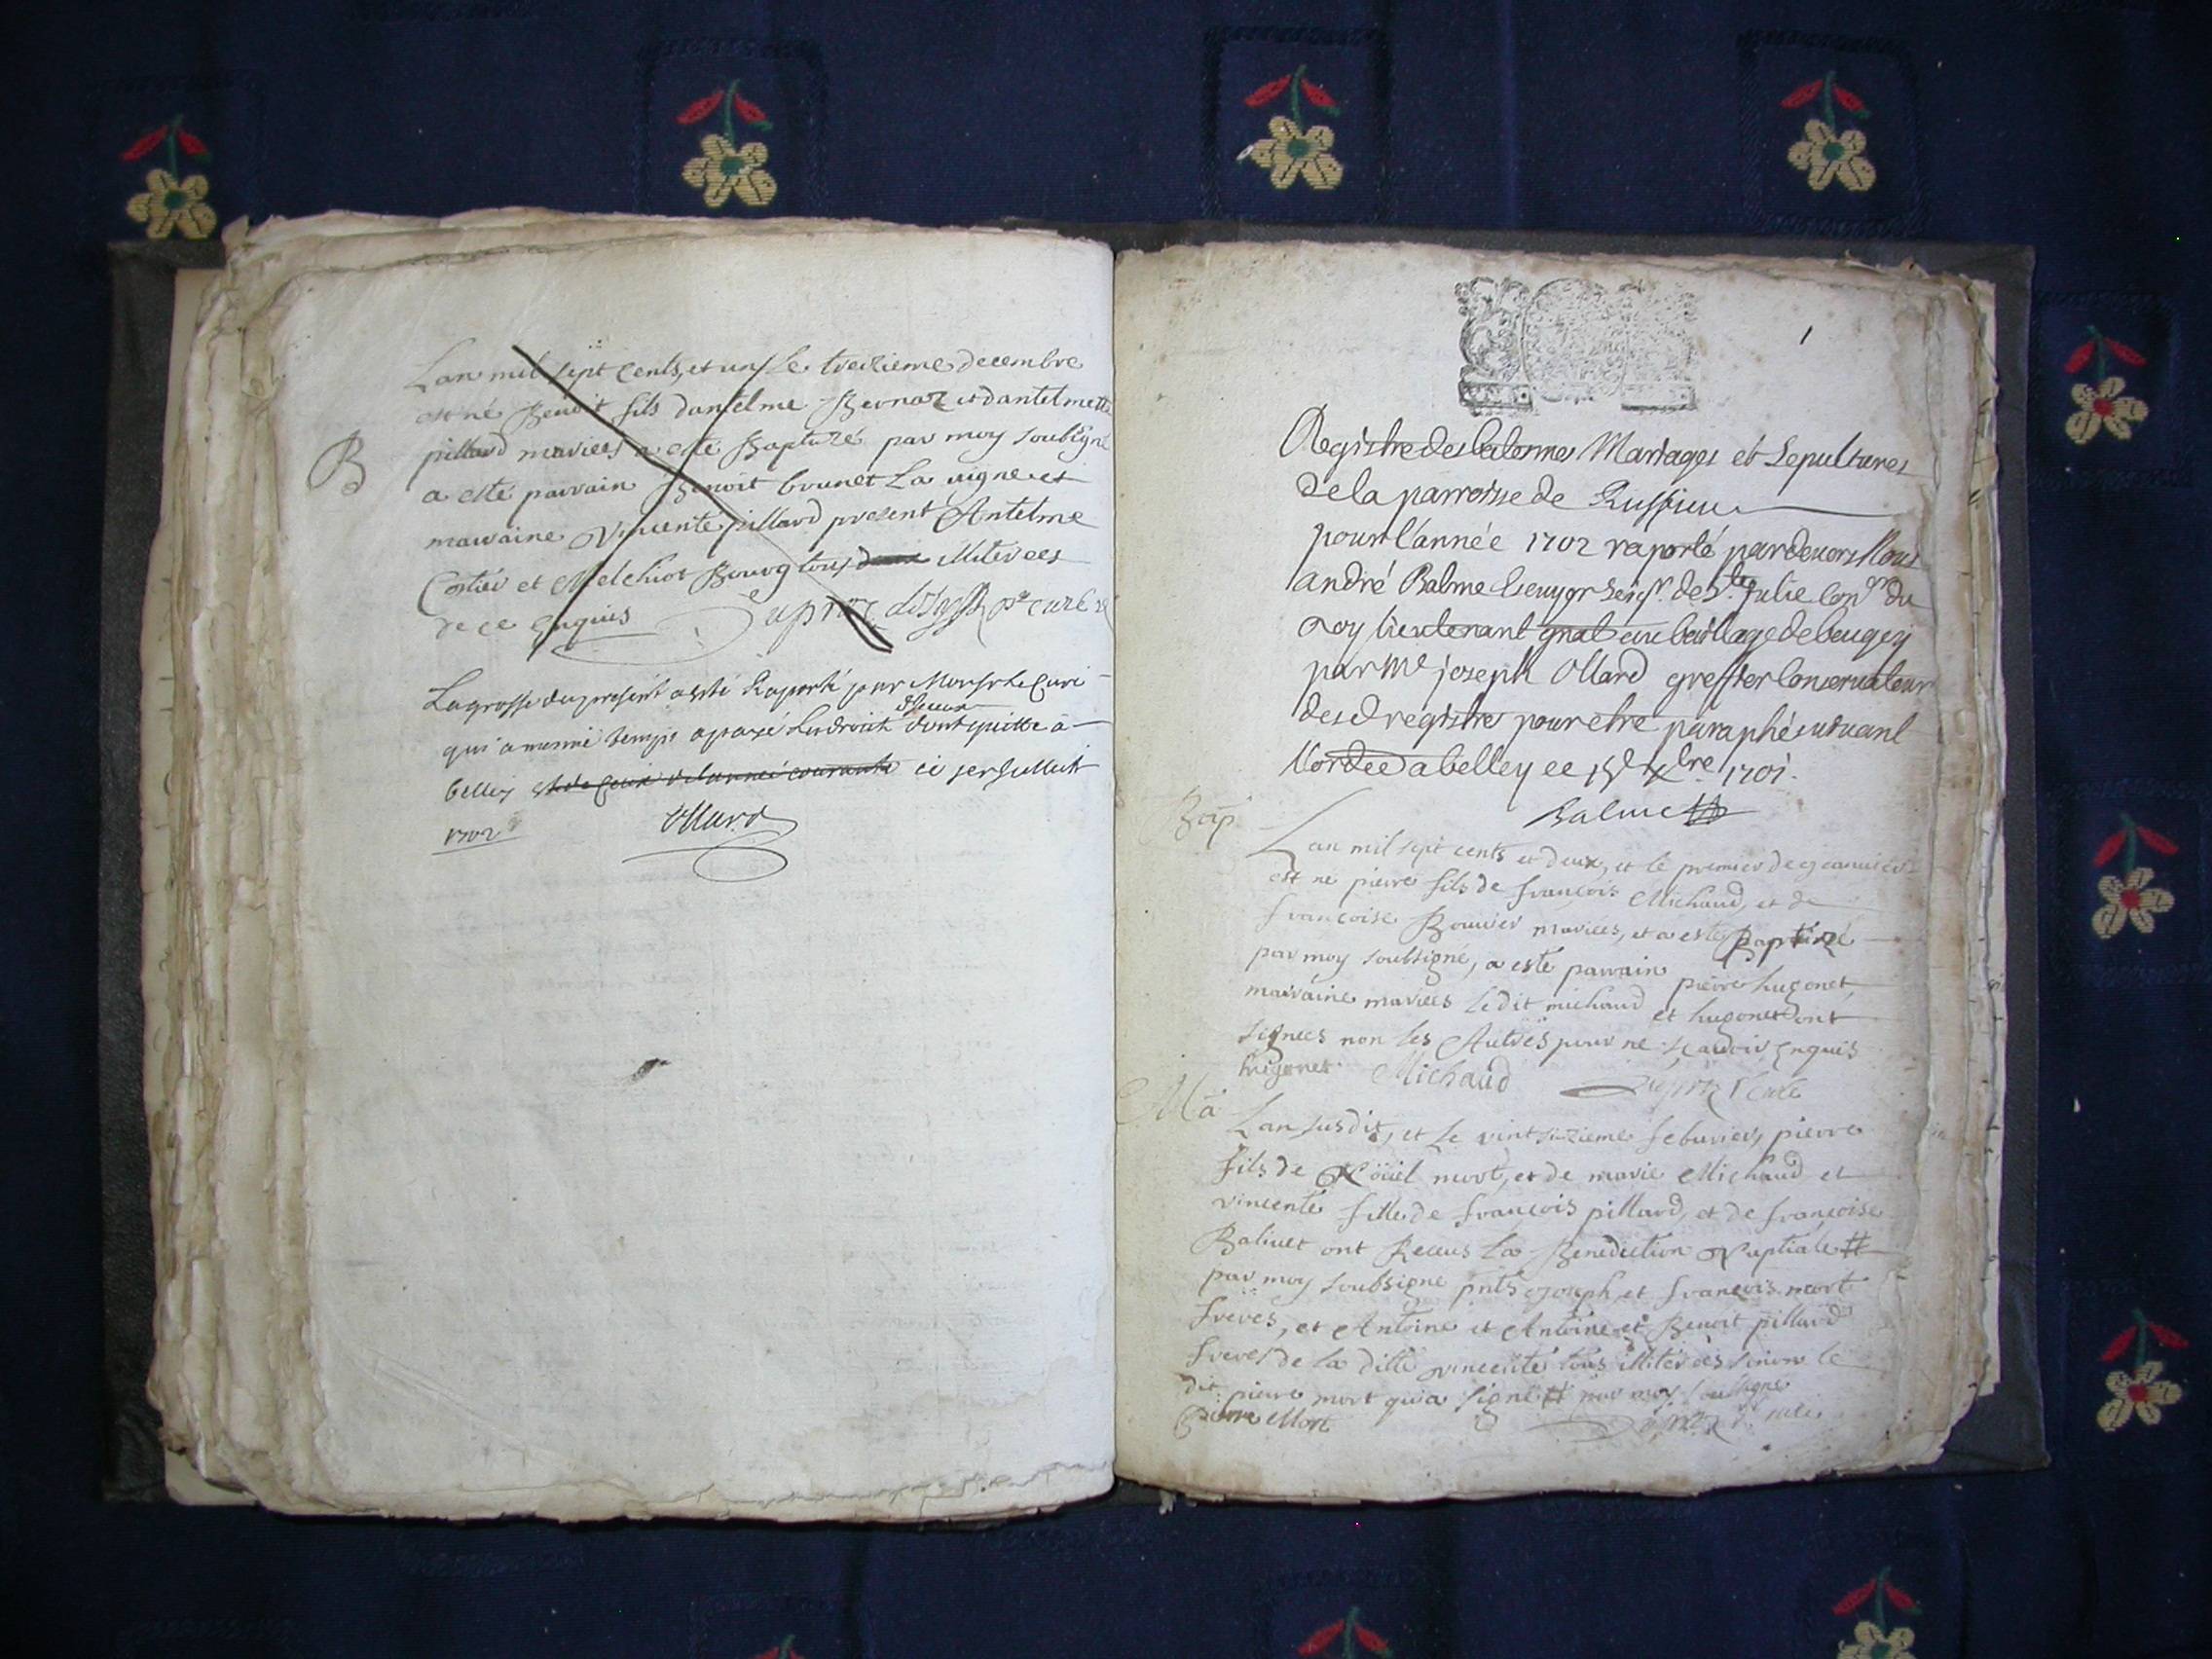 Lan mil sept cents, et un, Le treizieme decembre
est né Benoit fils dantelme Bernaz et dantelmette
B
pillard mariees a esté Baptizé par moy soubsigné
a esté parrain Benoit brunet La vigne et
marraine Vincente pillard present Antelme
Costier et Melchiot Bourg tous deux illiterees
de ce Enquis
La grosse du present a esté Raporté par Monsr le Curé
diceux
qui a mesme temps a payé Les droits dont quitte a
belley et de ceux de lannée courante ce juillet
1702 Ollard
1
Registre des batesmes Mariages et Sepultures
de la parroisse de Ruffieu
pour l'année 1702 raporté pardevers Nous
André Balme Escuyer Seigr. de Ste Julie Coner du
Roy lieutenant gnal au bailliage de beugey
par Me joseph Ollard greffier Conservateur
desd registres pour etre paraphé suivant
Lordce a belley ce Xbre 1701.
Balme
Bap
Lan mil sept cents et deux, et le premier de jeanvier
est né pierre fils de francois Michaud, et de
francoise Bouvier mariees, et a esté Baptizé
par moy soubsigné, a esté parrain pierre hugonet,
marraine mariees ledit michaud et hugonet ont
signees non les Autres pour ne scavoir Enquis
hugonet Michaud
Ma
Lan susdit, et Le vint sixieme feburier, pierre
fils de Noüel mort, et de marie Michaud et
vincente fille de francois pillard, et de francoise
Balivet ont Receus La Benediction Nuptiale #
par moy soubsigne pnts joseph et francois mort
freres, et Antoine et Antoine et Benoit pillard
freres de la ditte vincente tous illiterees sinon le
dit pierre mort qui a signé # par moy soubsigne
Pierre Mort